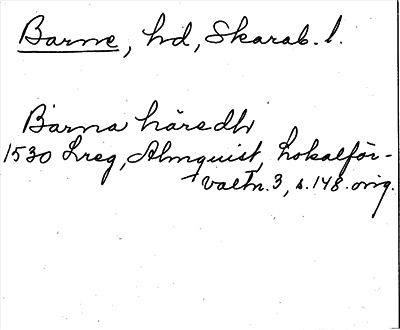 Barne, hd, Skarab. l.
Barna häredh
1530 Lreg, Almquist, Lokalför-
valtn. 3, s. 148. orig.